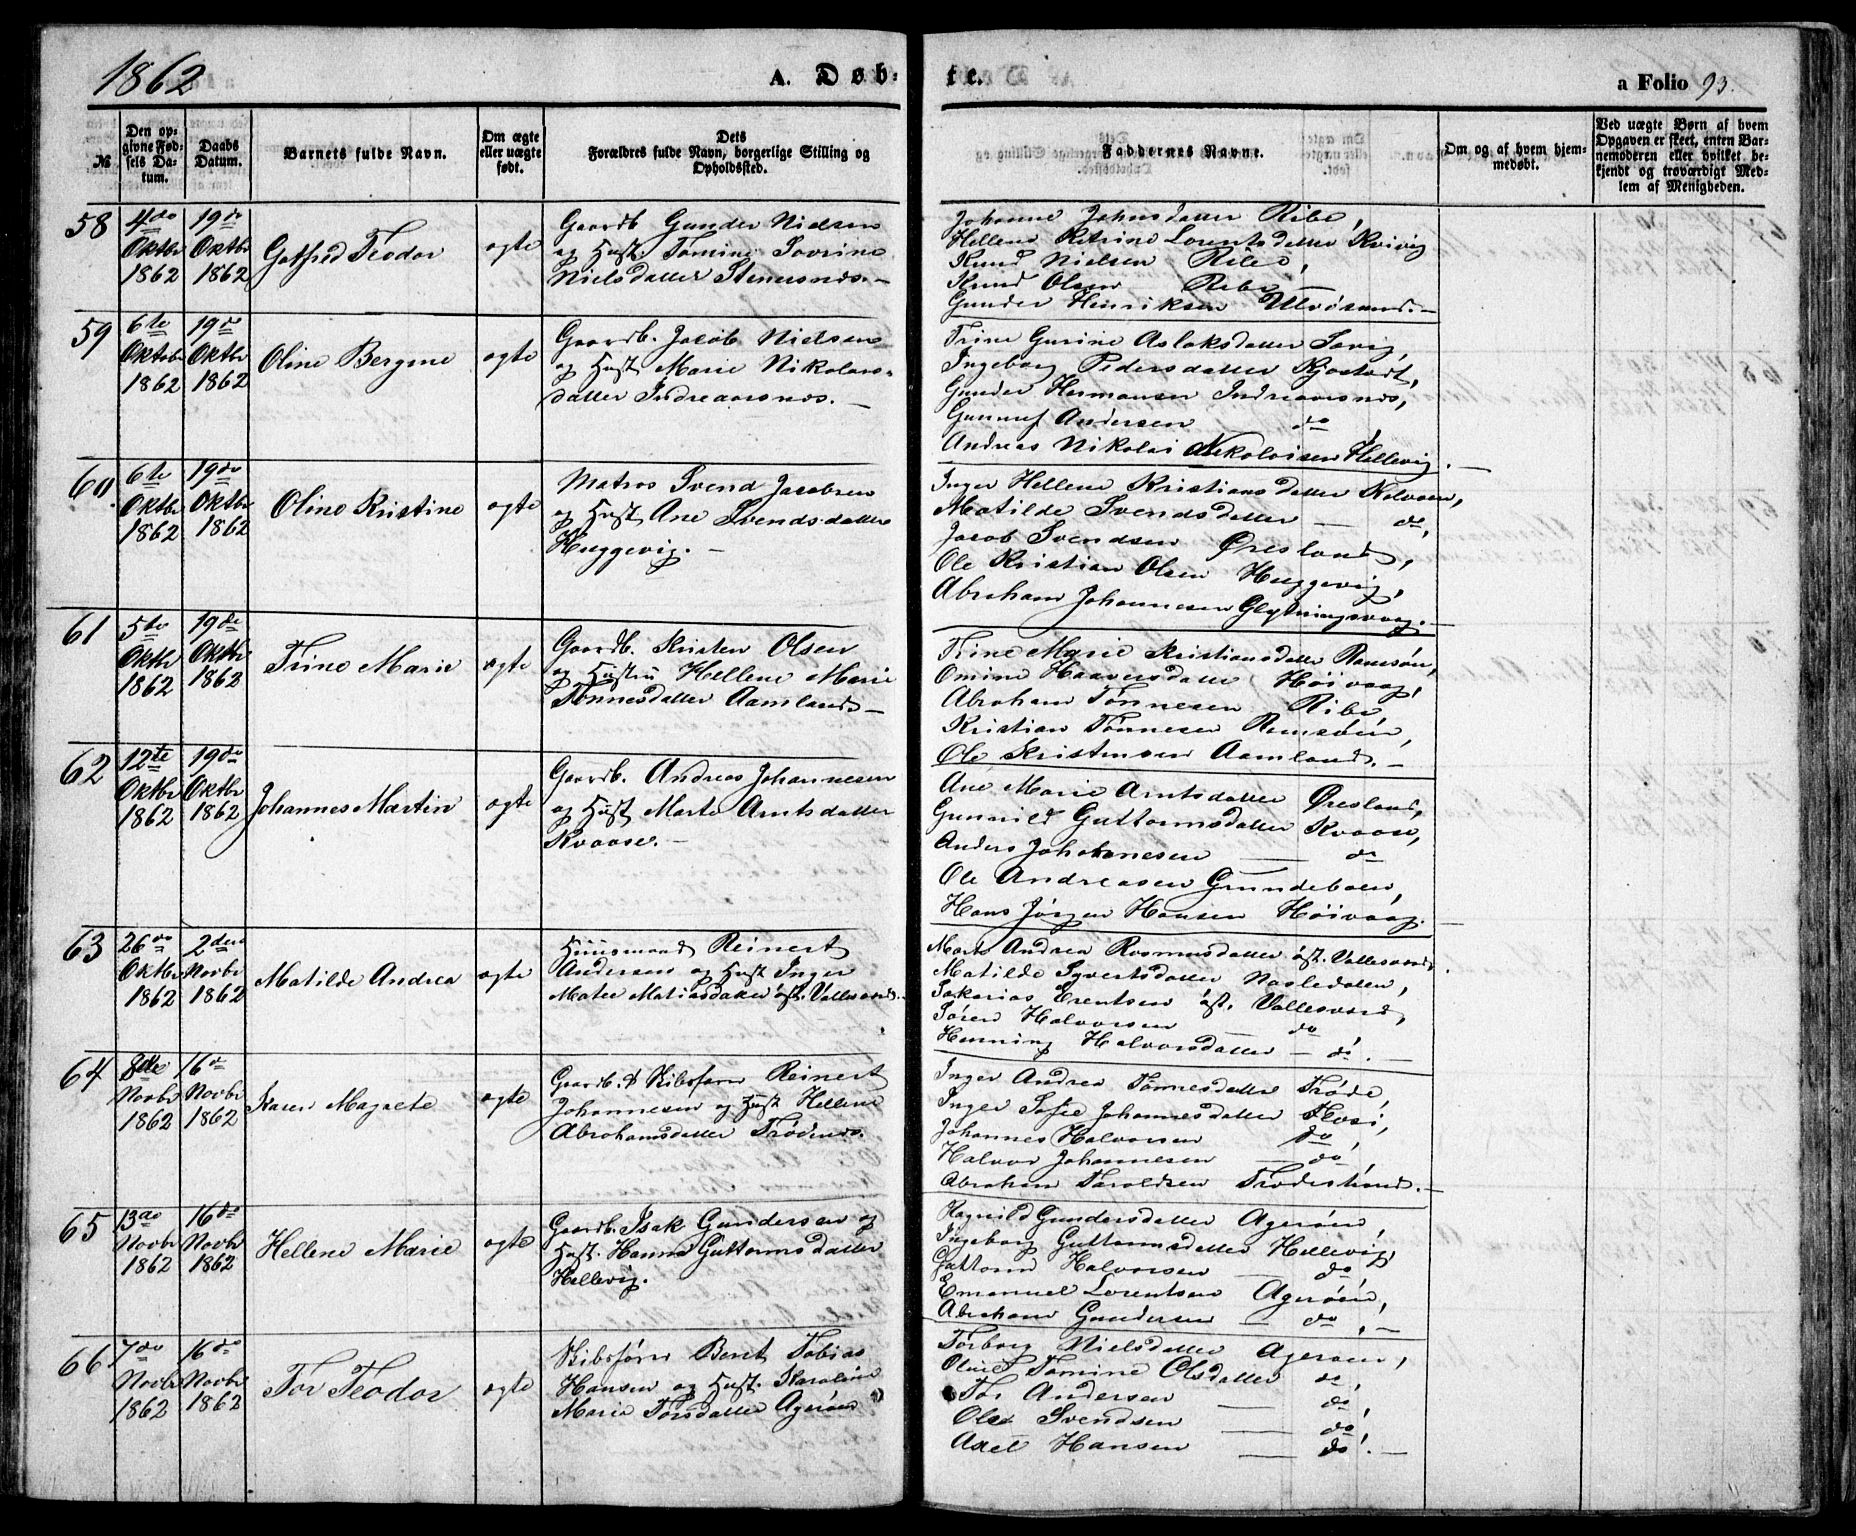 1862
A. Døb-
te.
a Folio 93.
№
Den opgivne Fødsels Datum.
Daabs Datum.
Barnets fulde Navn.
Om ægte eller uægte født.
Dets
Forældres fulde Navn, borgerlige Stilling og Opholdssted.
Faddernes Navne.
Om og af hvem hjemmedøbt.
Ved uægte Børn af hvem Opgaven er skeet, enten Barnemoderen eller hvilket bekjendt og troværdigt Medlem af Menigheden.
58
4de Oktbr 1862
19de Oktbr 1862
Gotfred Teodor
ægte
Gaardb. Gunder Nielsen
og Hust. Tomine Sovrine
Nielsdatter Stenesnes.-
Johanne Johnsdatter Ribe,
Hellene Petrine Lorentsdatter Kvivig
Knud Nielsen Ribe,
Knud Olsen Ribe -
Gunder Henriksen Ulvøsund.-
59
6te Oktobr 1862
19de Oktbr 1862
Oline Bergine
ægte
Gaardb. Jacob Nielsen
og Hust Marie Nikolais-
datter Indreaarsnes. -
Trine Gurine Aslaksdatter Sævig,
Ingeborg Pedersdatter Kjøstedt,
Gunder Hermansen Indreaaresnes,
Gunnuf Andersen do
Andreas Nikolai Nikolaisen Hellevig. -
60.
6te Oktbr 1862
19de Oktbr 1862
Oline Kristine
ægte
Matros Svend Jacobsen
og Hust Ane Svendsdatter
Huggevig. -
Inger Hellene Kristiansdatter Kalvøen,
Matilde Svendsdatter - do,
Jacob Svendsen Øresland,
Ole Kristian Olsen Huggevig,
Abraham Johannesen Glytningsvaag. -
61
5te Oktbr 1862
19de Oktbr 1862
Trine Marie
ægte
Gaardb. Kristen Olsen
og Hustru Hellene Marie
Tønnesdatter Aamland -
Trine Marie Kristiansdatter Ramsøen,
Omine Haaversdatter Høivaag,
Abraham Tønnesen Ribe
Kristian Tønnesen Ramsøen,
Ole Kristensen Aamland. -
62
12te Oktbr 1862
19de Oktbr 1862
Johannes Martin
ægte
Gaardb. Andreas Johannesen
og Hust Marte Arntsdatter
Kvaase. -
Ane Marie Arntsdatter Øresland,
Gunnild Guttormsdatter Kvaase,
Anders Johannesen - do
Ole Andreasen Grundeboen,
Hans Jørgen Hansen Høivaag. -
63
26de Oktbr 1862
2den Novbr 1862
Matilde Andrea
ægte
Huusmand Reinert
Andersen og Hust Inger
Matee Matiasdatter öst. Vallesværd. -
Marte Andrea Rasmusdatter öst. Vallesværd.
Matilde Syvertsdatter Nasledalen,
Sakarias Erentsen öst. Vallesværd,
Søren Halvorsen - do,
Henning Halvorsdatter - do. -
64
8de Novbr 1862
16de Novbr 1862
Karen Magrete
ægte
Gaardb. & Skibsfører Reinert
Johannesen og Hust Hellene
Abrahamsdatter Trødenes.
Inger Andrea Tønnesdatter Trøde,
Inger Sofie Johannesdatter
Johannes Halvorsen do,
Halvor Johannesen - do,
Abraham Taroldsen Trødestrand. -
65
13de Novbr 1862
16de Novbr 1862
Hellene Marie
ægte
Gaardb. Isak Gundersen og
Hust. Hanna Guttormsdatter
Hellevig.
Ragnild Gundersdatter Agerøen
Ingeborg Guttormsdatter Hellevig,
Guttorm Halvorsen - do
Emanuel Lorentsen Agerøen,
Abraham Gundersen - do, -
66
7de Novbr 1862
16de Novbr 1862
Tor Teodor
ægte
Skibsfører Beret Tobias
Hansen og Hust. Karoline
Marie Torsdatter Agerøen
Torborg Nielsdatter Agerøen,
Oline Tomine Olsdatter do,
Tor Andersen - do,
Ole Svendsen - do,
Axel Hansen - do. -